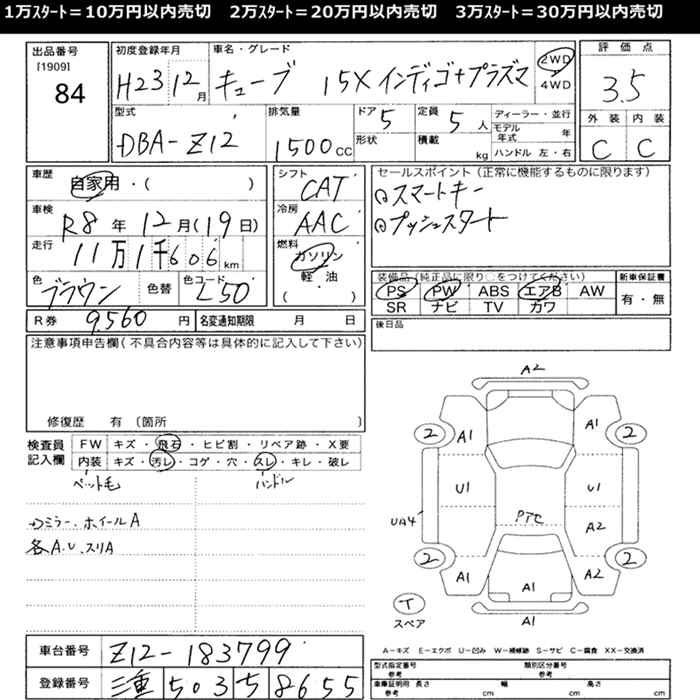 1万ｽﾀｰﾄ＝10万円以内売切　2万ｽﾀｰﾄ＝20万円以内売切　3万ｽﾀｰﾄ＝30万円以内売切
出品番号 [1909] 84
初度登録年月 H23 12月
車名・グレード キューブ 15X インディゴ+プラズマ
2WD 4WD
評価点 3.5
型式 DBA-Z12
排気量 1500cc
ドア 5
形状
定員 5人
積載 kg
ディーラー・並行
モデル年式 年
ハンドル 左・右
外装 C 内装 C
車歴 自家用・( )
車検 R8年12月(19日)
走行 11万1千606km
色 ブラウン 色替 色コード L50
シフト CAT
冷房 AAC
燃料 ガソリン 軽・油 ( )
セールスポイント (正常に機能するものに限ります)
スマートキー
プッシュスタート
装備品(純正品に限り○をつけてください)
PS PW ABS エアB AW
SR ナビ TV カワ
新車保証書 有・無
R券 9,560円 名変通知期限 月 日
後日品
注意事項申告欄(不具合内容等は具体的に記入して下さい)
修復歴 有 〔箇所 〕
検査員記入欄
FW キズ・飛石・ヒビ割・リペア跡・X要
内装 キズ・汚レ・コゲ・穴・スレ・キレ・破レ
ペット毛 ハンドル
ミラー、ホイールA
各A.U.スリA
A2
2 A1 A1 2
U1 U1
UA4 PTC A2
2 A1 A1 A2 2
T スペア A1
A－キズ E－エクボ U－凹み W－補修跡 S－サビ C－腐食 XX－交換済
車台番号 Z12-183799
登録番号 三重 503 ち 8655
型式指定番号 参考 類別区分番号 参考
車庫証明用 参考 長さ cm 幅 cm 高さ cm